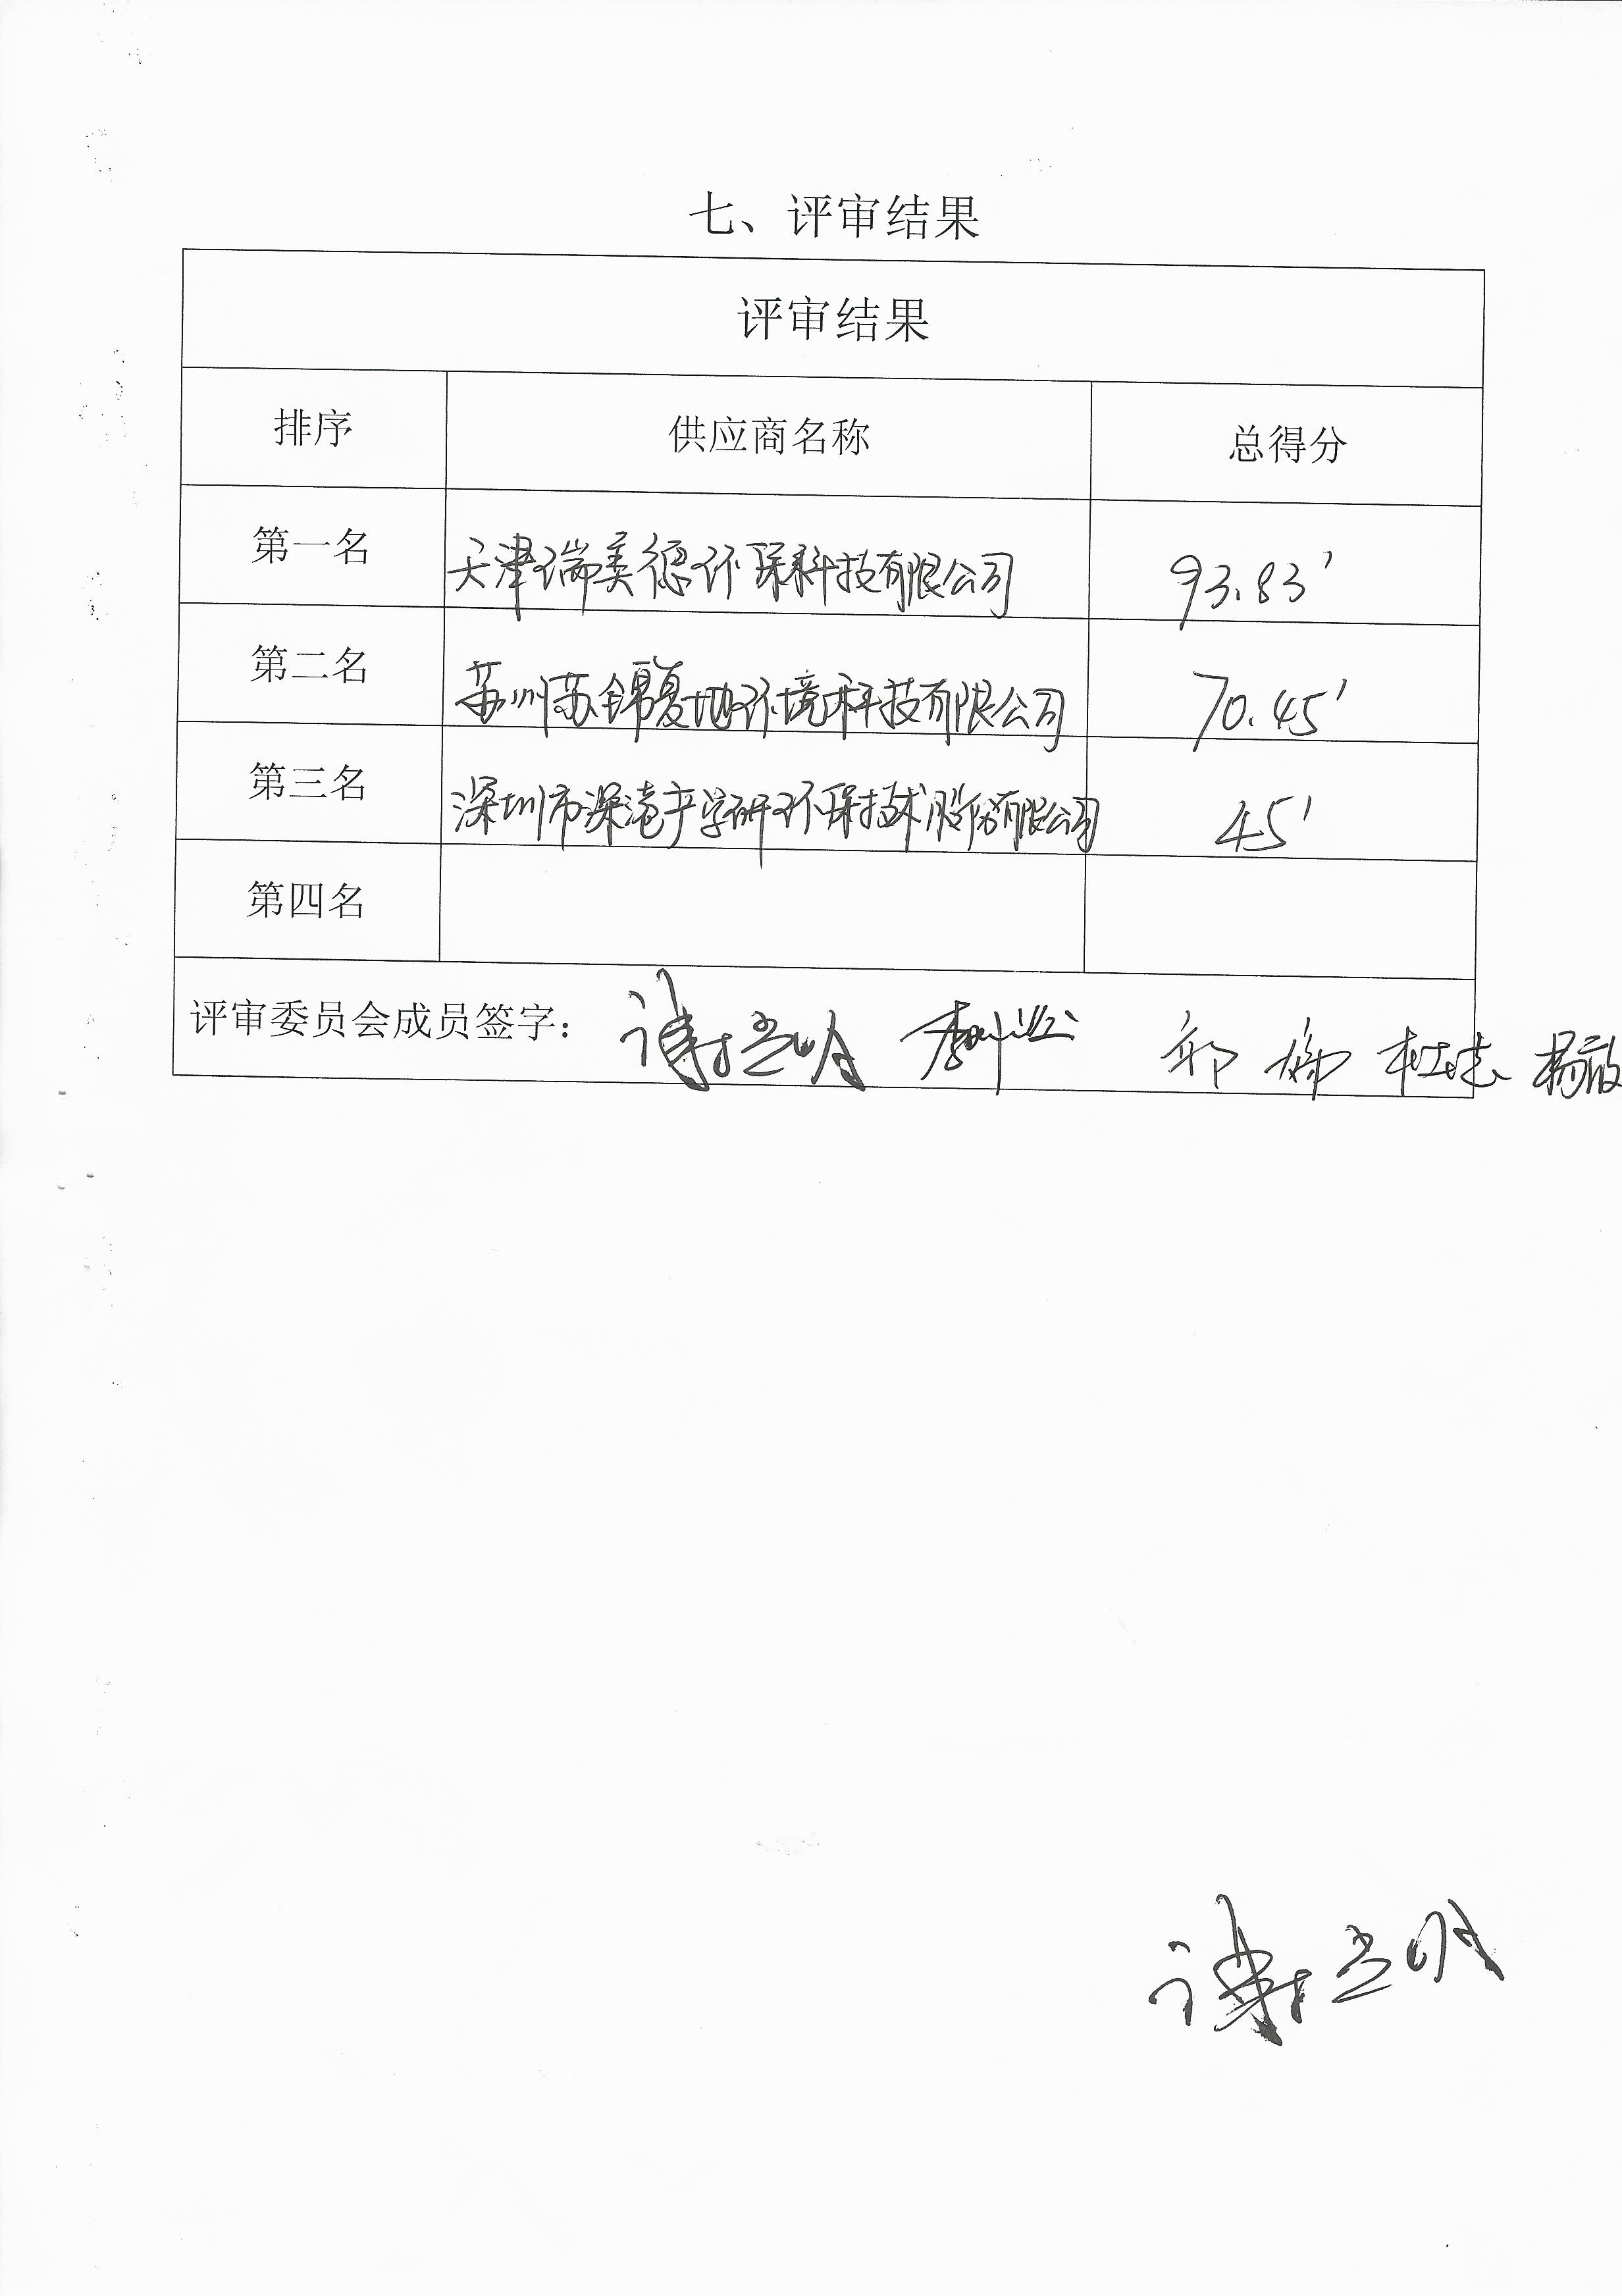 七、评审结果
评审结果
排序 供应商名称 总得分
第一名 天津瑞美德环保科技有限公司 93.83'
第二名 苏州苏锦复地环境科技有限公司 70.45'
第三名 深圳市深港产学研环保技术股份有限公司 45'
第四名
评审委员会成员签字：